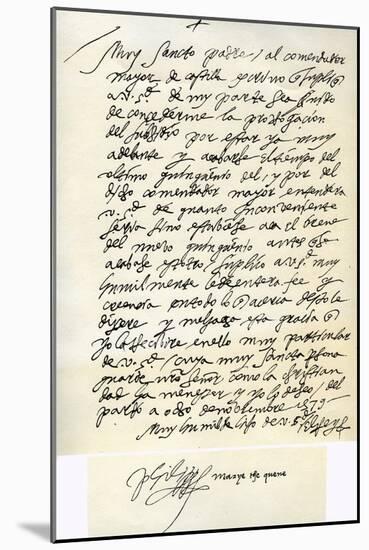 Muy Sancto padre / al comendador
mayor de castilla escrivo q supliq
a v. s.d de my parte sea
de concederme la prorogacion
del subsidio por estar ya muy
adelante y acabarse el tiempo del
ultimo quinquenio del / y por del
dicho comendador mayor entendera
v. s.d de quanto inconveniente
seria si no estubiese aca el breve
del nuevo quinquenio antes q se
acabase estotro / suplico a v. s.d muy
humilmente le de entera fee y
creencia en todo lo q acerca desto le
dixere y me haga esta gracia q
yo la recibire en ello muy particular
de v. s.d / cuya muy sancta persona
guarde nro señor como la christian
dad ha menester y yo lo deseo / del
pardo a ocho de noviembre 1579
Muy humilde hijo de v. s.d
Philipp marye the quene